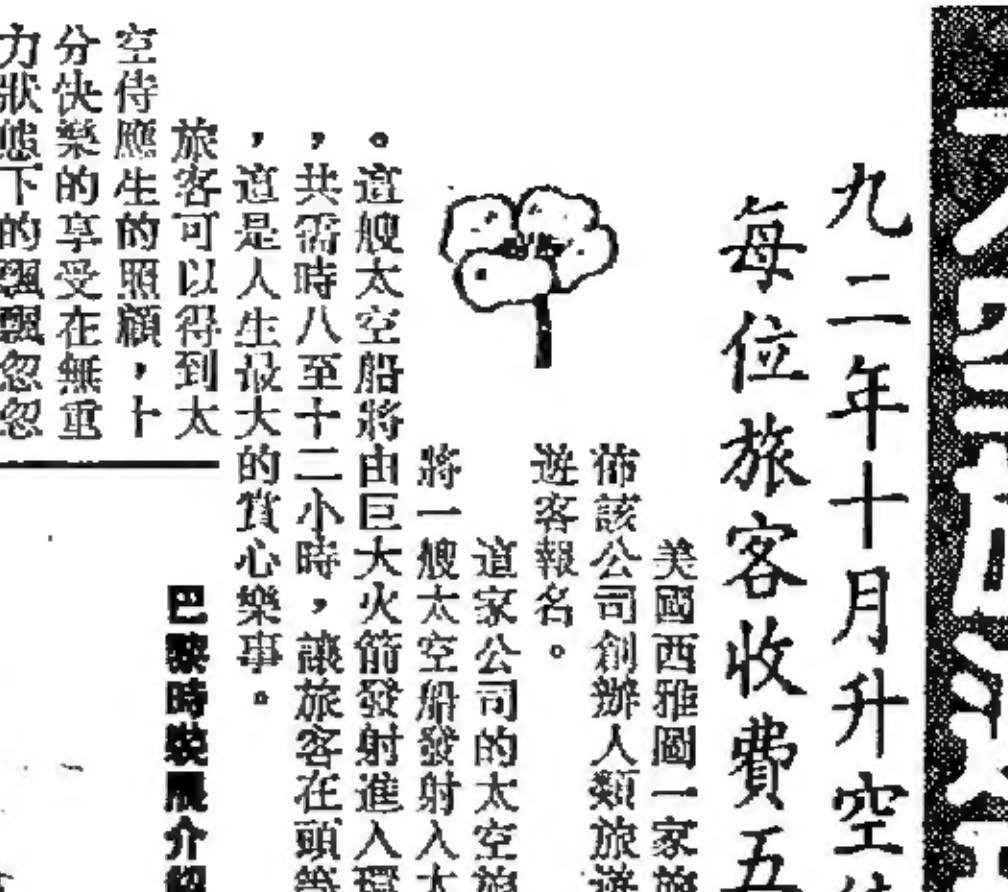 九二年十月升空
每位旅客收費五
美國西雅圖一家旅
佈該公司創辦人類旅遊
遊客報名。
這家公司的太空旅
將一艘太空船發射入太
。這艘太空船將由巨大火箭發射進入環
，共需時八至十二小時，讓旅客在頭等
，這是人生最大的賞心樂事。
旅客可以得到太
空侍應生的照顧，十
分快樂的享受在無重
力狀態下的飄飄忽忽
巴黎時裝展介紹